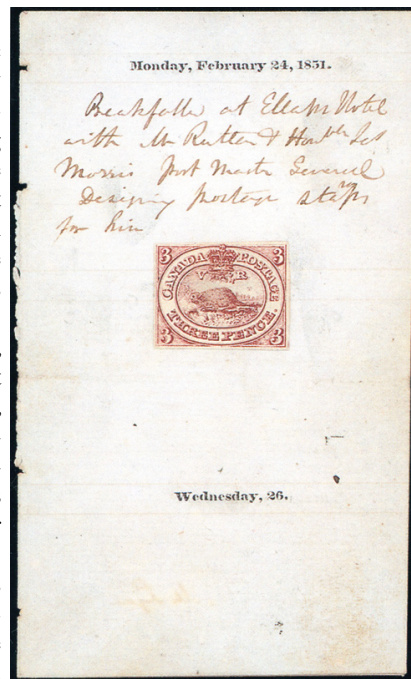 Monday, February 24, 1851.
Breakfasted at Ellahs Hotel
with Mr Rutten & Honble Jas
Morris Post Master General
Designing postage stamps
for him
3 3
CANADA POSTAGE
V R
THREE PENCE.
3 3
Wednesday, 26.